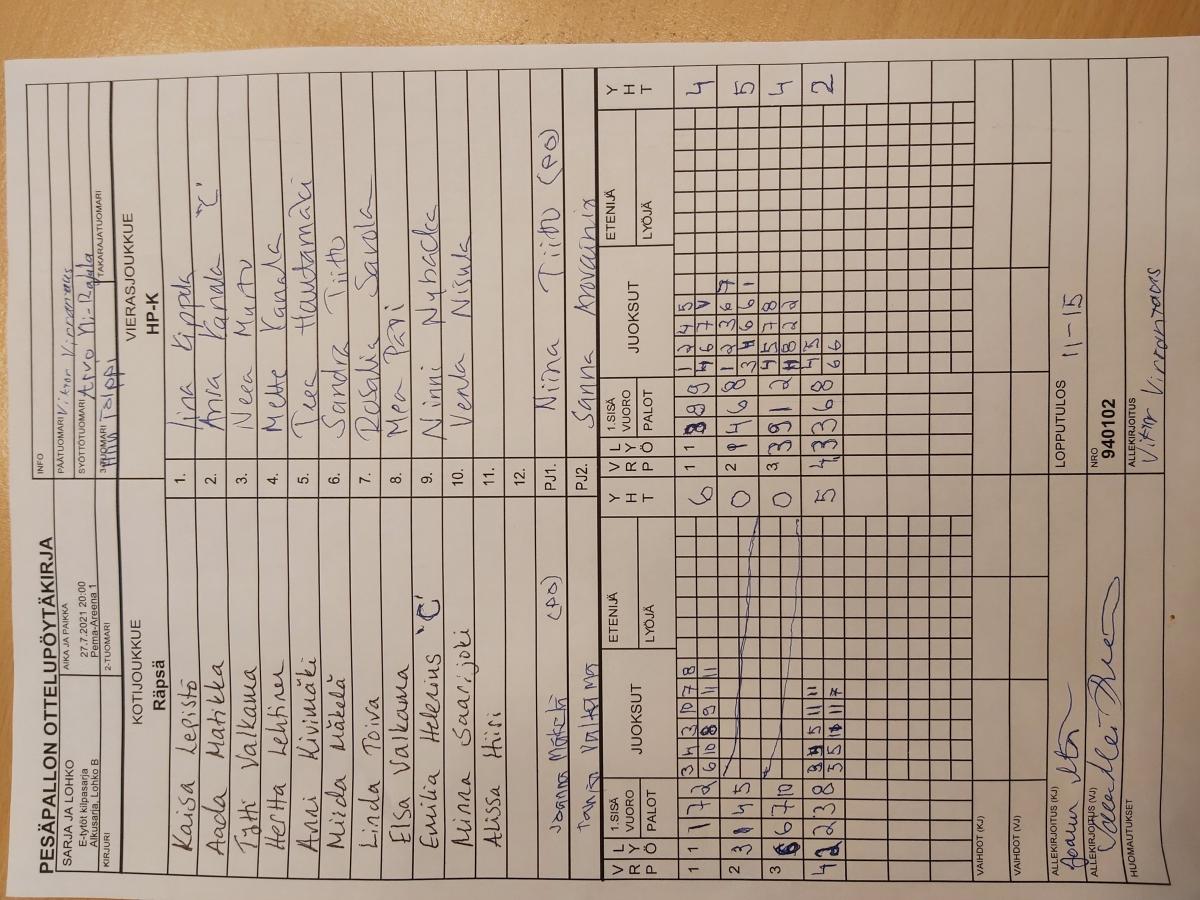 PESÄPALLON OTTELUPÖYTÄKIRJA
SARJA JA LOHKO
E-tytöt kilpasarja
Alkusarja, Lohko B
AIKA JA PAIKKA
27.7.2021 20:00
Pema-Areena 1
INFO
PÄÄTUOMARI
SYÖTTÖTUOMARI Arvo Yli-Rajala
KIRJURI
2-TUOMARI
3-TUOMARI
TAKARAJATUOMARI
KOTIJOUKKUE
Räpsä
VIERASJOUKKUE
HP-K
Kaisa Lepistö 1. Iina Kippula
Aada Matikka 2. Ansa Kanala "C"
Tytti Valkama 3. Neea Murto
Hertta Lehtinen 4. Mette Kanala
Anni Kivimäki 5. Tea Hautamäki
Miida Mäkelä 6. Sandra Tiitto
Linda Toiva 7. Rosalia Savola
Elsa Valkama 8. Mea Pari
Emilia Helenius "C" 9. Ninni Nybacka
Minna Saarijoki 10. Venla Nisula
Alissa Hiisi 11.
12.
Joanna (PO) PJ1. Niina Tiitto (PO)
PJ2. Sanna
VRP LYÖ 1.SISÄ VUORO PALOT JUOKSUT ETENIJÄ LYÖJÄ YHT
VRP LYÖ 1.SISÄ VUORO PALOT JUOKSUT ETENIJÄ LYÖJÄ YHT
1 1 1 7 2 3 4 3 10 7 8 6
6 10 8 9 11 11
1 1 8 8 9 1 2 4 5 4
4 6 7 V
2 3 4 5 0
2 1 4 6 8 1 2 3 6 7 5
3 4 6 6 1
3 6 6 7 10 0
3 3 9 1 2 4 5 7 8 4
4 8 2 2
4 2 2 3 8 5
5 5 10 11 7
4 3 3 6 8 4 5 2
6 6
VAIHDOT (KJ)
VAIHDOT (VJ)
ALLEKIRJOITUS (KJ)
LOPPUTULOS 11-15
ALLEKIRJOITUS (VJ)
NRO
940102
HUOMAUTUKSET
ALLEKIRJOITUS